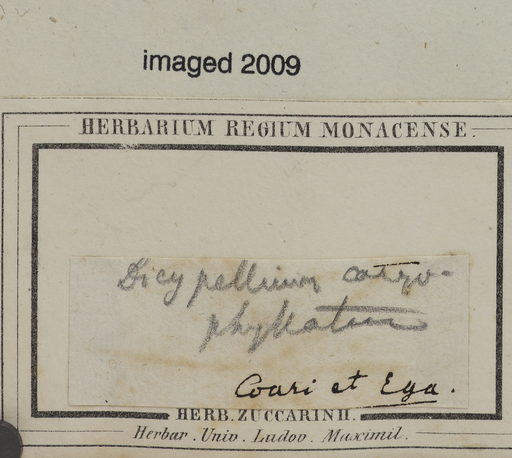 imaged 2009
HERBARIUM REGIUM MONACENSE.
Dicypellium caryo-
phyllatum
Coari et Ega.
HERB. ZUCCARINII.
Herbar. Univ. Ludov. Maximil.